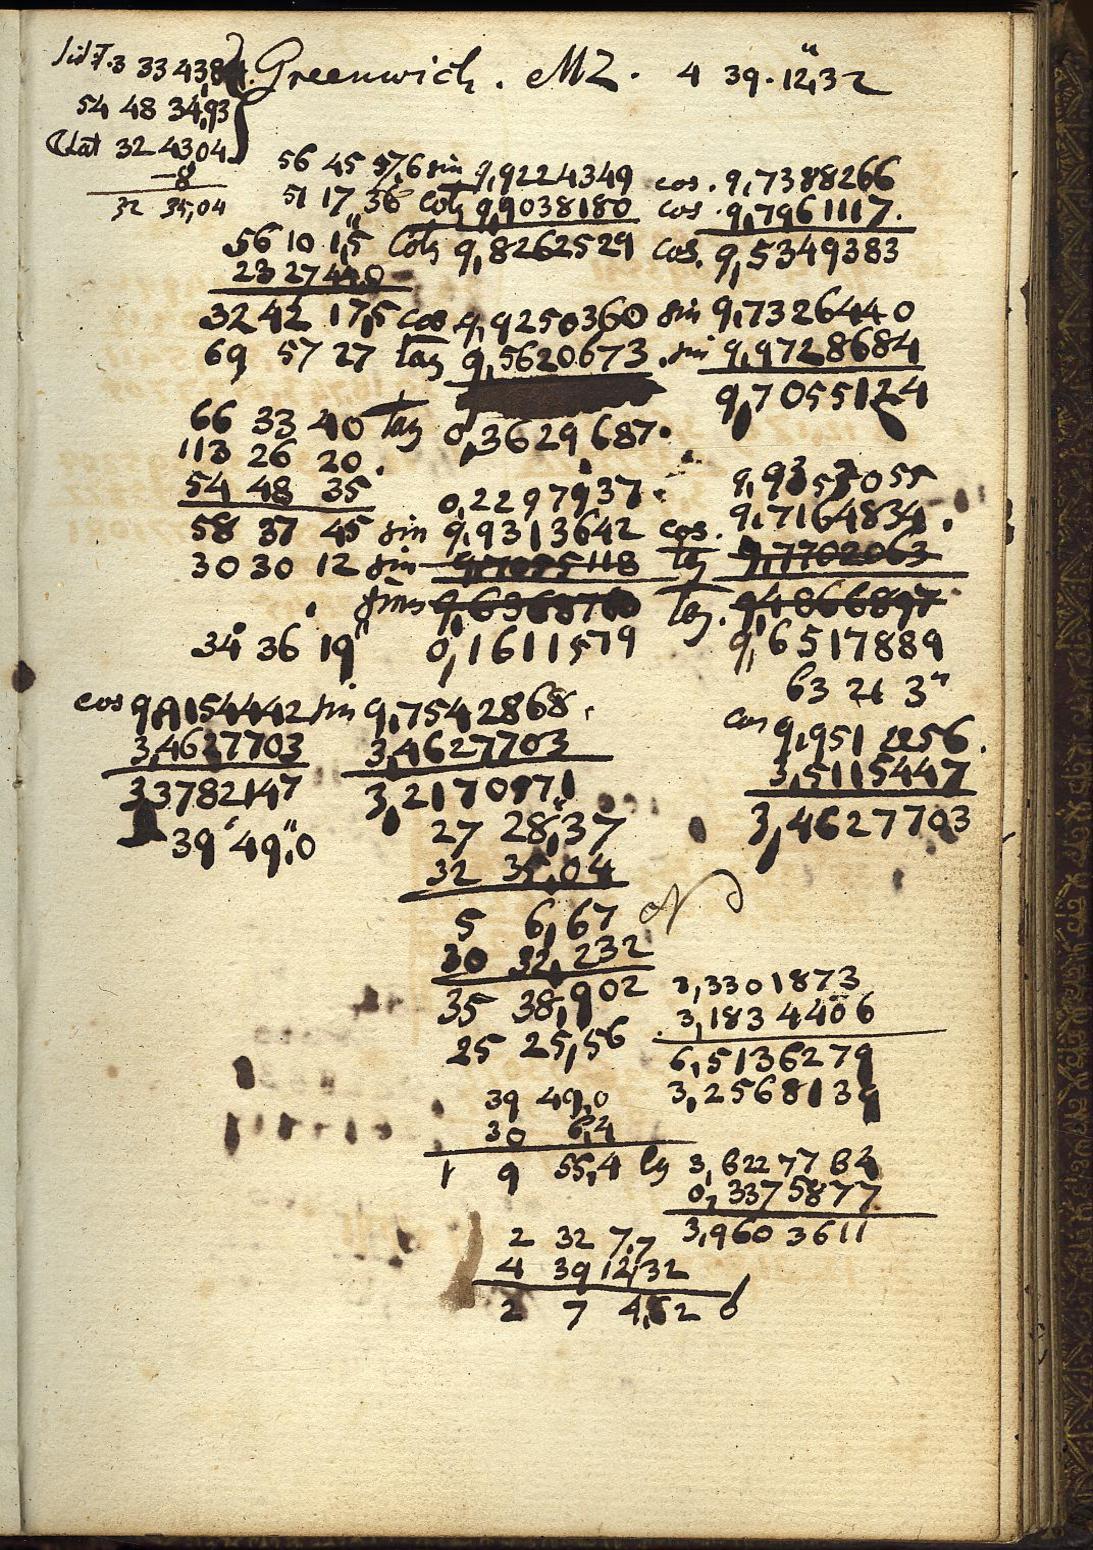 3 33 43,84. Greenwich. MZ. 4 39. 12,32
54 48 34,93
Lat 32 43,04
-8
32 35,04
56 45 57,6 sin 9,9224349 cos. 9,7388266
51 17 36 Cotg 9,9038180 cos. 9,7961117.
56 10 1,5 Cotg 9,8262529 cos. 9,5349383
23 27 44,0
32 42 17,5 cos 9,9250360 sin 9,7326440
69 57 27 tag 9,5620673 . sin 9,9728684
9,7055124
66 33 40 tag 0,3629687.
113 26 20.
54 48 35 0,2297937. 9,9357055
58 37 45 sin 9,9313642 cos. 9,7164834.
30 30 12 sin 9,7055118 tg 9,7702063
sins tag. 9,4866897
34 36 19" 0,1611579 9,6517889
63 21 3"
cos 9,9154442 sin 9,7542868. cos 9,951 2256.
3,4627703 3,4627703 3,5115447
3,3782147 3,2170971 3,4627703
39' 49",0 27 28",37
32 35,04
5 6,67
30 32,232
35 38,902 3,3301873
3,1834406
25 25,56 6,5136279
39 49,0 3,2568139
30 6,4
1 9 55,4 lg 3,6227764
0,3375877
2 32 7,7 3,9603611
4 39 12,32
2 7 4,62